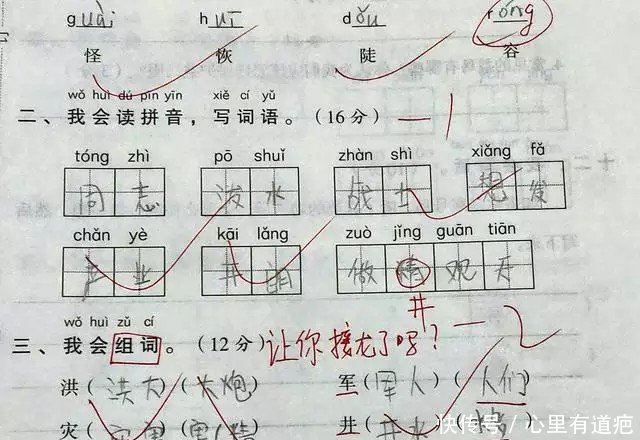 guài huī dǒu róng
怪 恢 陡 容
wǒ huì dú pīn yīn xiě cí yǔ
二、我会读拼音，写词语。(16分) —1
tóng zhì pō shuǐ zhàn shì xiǎng fǎ
同志 泼水 战士 想发
chǎn yè kāi lǎng zuò jǐng guān tiān
产业 开朗 做 观天
井
wǒ huì zǔ cí
三、我会组词。(12分) 让你接龙了吗? —2
洪(洪大)(大炮) 军(军人)(人们)
灾( 井(井水)(
快传号／心里有道疤